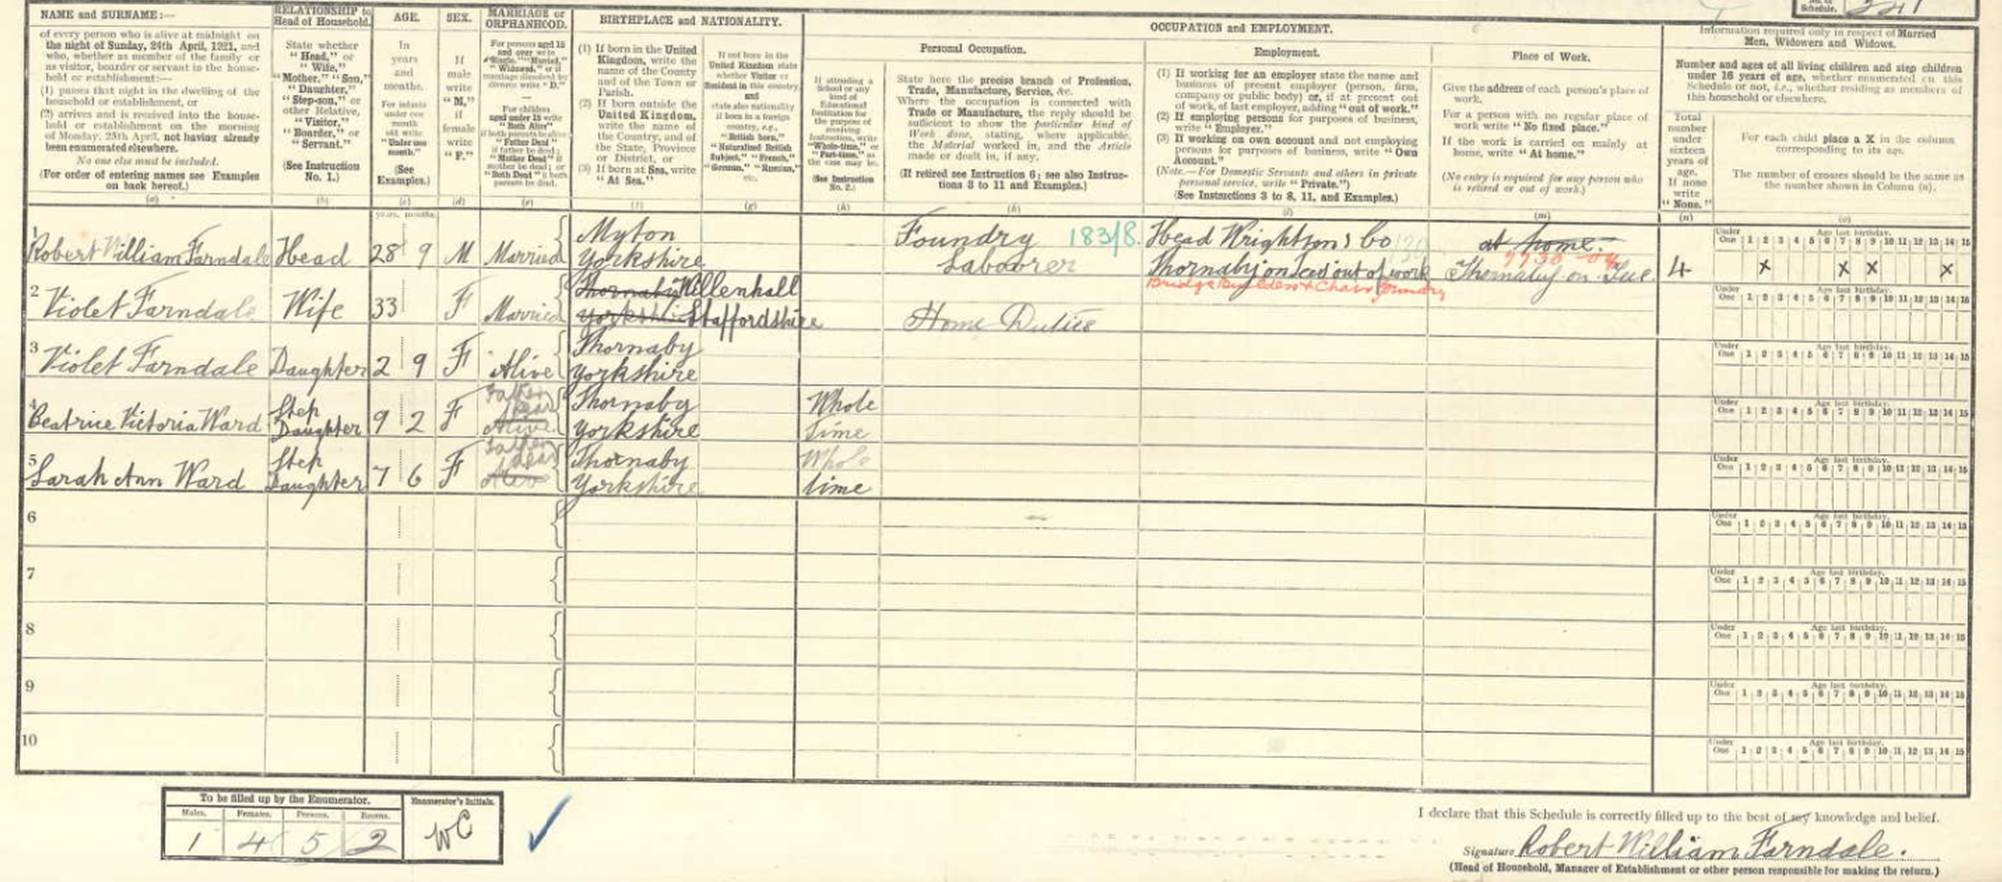 No. of
Schedule. 241
NAME and SURNAME:—
of every person who is alive at midnight on
the night of Sunday, 24th April, 1921, and
who, whether as member of the family or
as visitor, boarder or servant in the house-
hold or establishment:—
(1) passes that night in the dwelling of the
household or establishment, or
(2) arrives and is received into the house-
hold or establishment on the morning
of Monday, 25th April, not having already
been enumerated elsewhere.
No one else must be included.
(For order of entering names see Examples
on back hereof.)
(a)
RELATIONSHIP to
Head of Household.
State whether
"Head," or
"Wife,"
"Mother," "Son,"
"Daughter,"
"Step-son," or
other Relative,
"Visitor,"
"Boarder," or
"Servant."
(See Instruction
No. 1.)
(b)
AGE.
In
years
and
months.
For infants
under one
month
old write
"Under one
month."
(See
Examples.)
(c)
years. months.
SEX.
If
male
write
"M,"
if
female
write
"F."
(d)
MARRIAGE or
ORPHANHOOD.
For persons aged 15
and over write
"Single," "Married,"
"Widowed," or if
marriage dissolved by
divorce write "D."
For children
aged under 15 write
"Both Alive"
if both parents be alive
"Father Dead"
if father be dead;
"Mother Dead" if
mother be dead; or
"Both Dead" if both
parents be dead.
(e)
BIRTHPLACE and NATIONALITY.
(1) If born in the United
Kingdom, write the
name of the County
and of the Town or
Parish.
(2) If born outside the
United Kingdom,
write the name of
the Country, and of
the State, Province
or District, or
(3) If born at Sea, write
"At Sea."
(f)
If not born in the
United Kingdom state
whether Visitor or
Resident in this country
and
state also nationality
if born in a foreign
country, e.g.,
"British born,"
"Naturalised British
Subject," "French,"
"German," "Russian,"
etc.
(g)
If attending a
School or any
kind of
Educational
Institution for
the purpose of
receiving
Instruction, write
"Whole-time," or
"Part-time," as
the case may be.
(See Instruction
No. 2.)
(h)
OCCUPATION and EMPLOYMENT.
Personal Occupation.
State here the precise branch of Profession,
Trade, Manufacture, Service, &c.
Where the occupation is connected with
Trade or Manufacture, the reply should be
sufficient to show the particular kind of
Work done, stating, where applicable,
the Material worked in, and the Article
made or dealt in, if any.
(If retired see Instruction 6; see also Instruc-
tions 3 to 11 and Examples.)
(k)
Employment.
(1) If working for an employer state the name and
business of present employer (person, firm,
company or public body) or, if at present out
of work, of last employer, adding "out of work."
(2) If employing persons for purposes of business,
write "Employer."
(3) If working on own account and not employing
persons for purposes of business, write "Own
Account."
(Note.—For Domestic Servants and others in private
personal service, write "Private.")
(See Instructions 3 to 8, 11, and Examples.)
(l)
Place of Work.
Give the address of each person's place of
work.
For a person with no regular place of
work write "No fixed place."
If the work is carried on mainly at
home, write "At home."
(No entry is required for any person who
is retired or out of work.)
(m)
Information required only in respect of Married
Men, Widowers and Widows.
Number and ages of all living children and step children
under 16 years of age, whether enumerated on this
Schedule or not, i.e., whether residing as members of
this household or elsewhere.
Total
number
under
sixteen
years of
age.
If none
write
"None."
(n)
For each child place a X in the column
corresponding to its age.
The number of crosses should be the same as
the number shown in Column (n).
(o)
1 Robert William Farndale Head 28 9 M Married Myton
Yorkshire
Foundry 183/8.
Labourer
Head Wrightson & Co
Thornaby on Tees out of work
Bridge Builders & Chair Foundry
at home.
Thornaby on Tees.
4
Under One 1 2 3 4 5 6 7 8 9 10 11 12 13 14 15
Age last birthday.
X X X X
2 Violet Farndale Wife 33 F Married Thornaby Willenhall
Yorkshire Staffordshire
Home Duties
Under One 1 2 3 4 5 6 7 8 9 10 11 12 13 14 15
Age last birthday.
3 Violet Farndale Daughter 2 9 F Alive Thornaby
Yorkshire
Under One 1 2 3 4 5 6 7 8 9 10 11 12 13 14 15
Age last birthday.
4 Beatrice Victoria Ward Step
Daughter 9 2 F Father
dead
Alive Thornaby
Yorkshire
Whole
Time
Under One 1 2 3 4 5 6 7 8 9 10 11 12 13 14 15
Age last birthday.
5 Sarah Ann Ward Step
Daughter 7 6 F Father
dead
Alive Thornaby
Yorkshire
Whole
time
Under One 1 2 3 4 5 6 7 8 9 10 11 12 13 14 15
Age last birthday.
6
Under One 1 2 3 4 5 6 7 8 9 10 11 12 13 14 15
Age last birthday.
7
Under One 1 2 3 4 5 6 7 8 9 10 11 12 13 14 15
Age last birthday.
8
Under One 1 2 3 4 5 6 7 8 9 10 11 12 13 14 15
Age last birthday.
9
Under One 1 2 3 4 5 6 7 8 9 10 11 12 13 14 15
Age last birthday.
10
Under One 1 2 3 4 5 6 7 8 9 10 11 12 13 14 15
Age last birthday.
To be filled up by the Enumerator.
Males. Females. Persons. Rooms.
1 4 5 2
Enumerator's Initials.
WC
I declare that this Schedule is correctly filled up to the best of my knowledge and belief.
Signature Robert William Farndale.
(Head of Household, Manager of Establishment or other person responsible for making the return.)